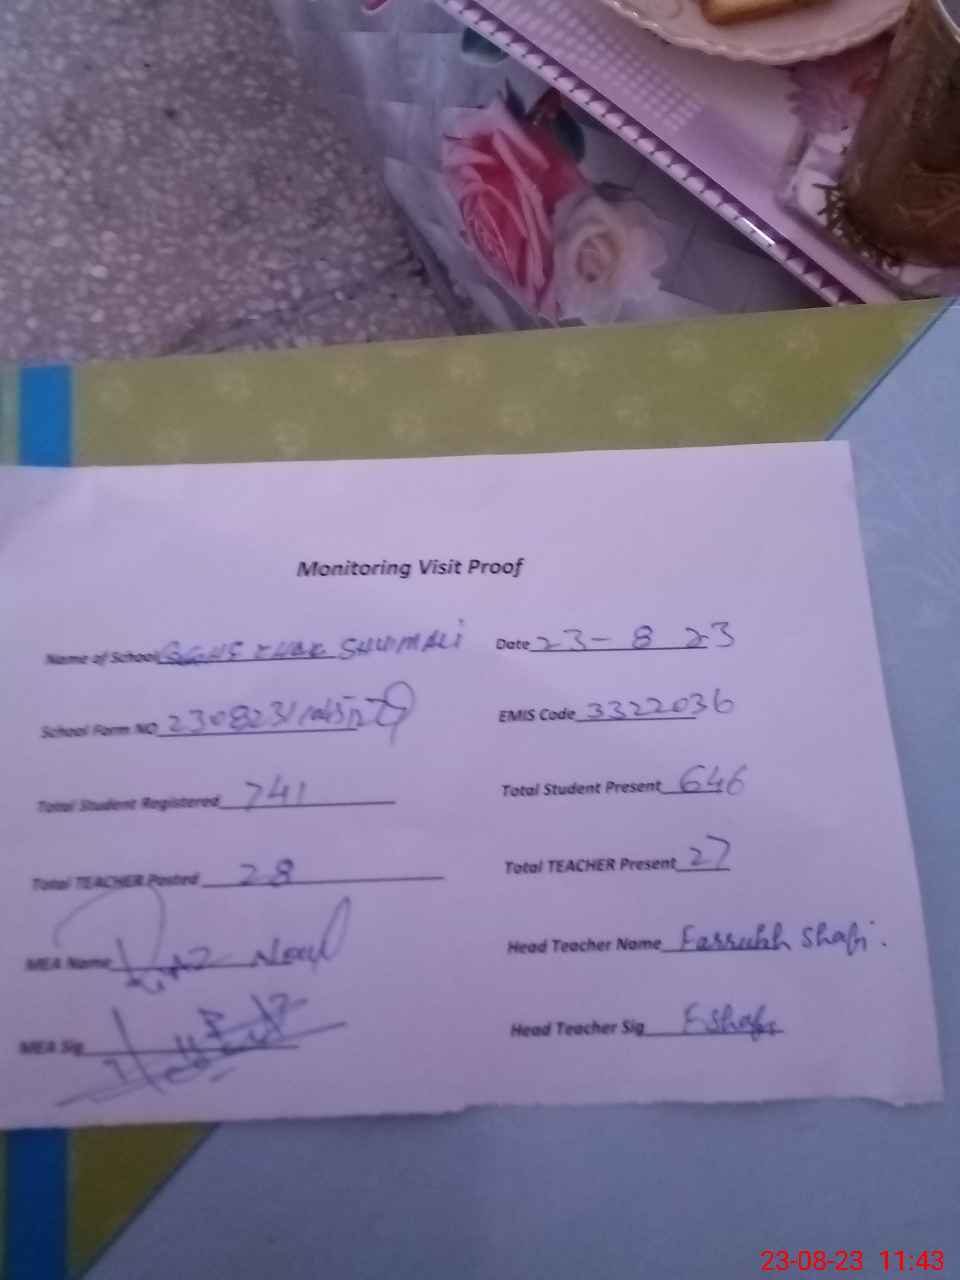 Monitoring Visit Proof
Name of School SHUMALi Date 23- 8 23
School Form NO EMIS Code 3322036
Total Student Registered 741 Total Student Present 646
Total TEACHER Posted 28 Total TEACHER Present 27
MEA Name Head Teacher Name Farrukh Shafi.
MEA Sig Head Teacher Sig FShafi
23-08-23 11:43